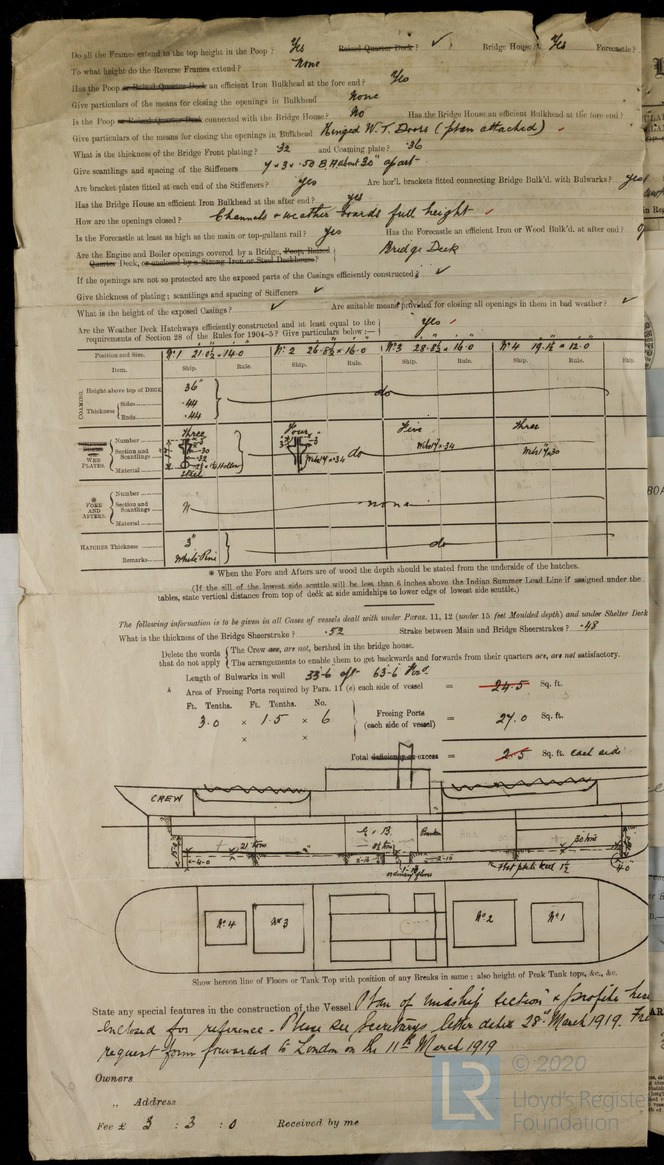 Do all the Frames extend to the top height in the Poop? Yes Raised Quarter Deck? ✓ Bridge House? Yes Forecastle?
To what height do the Reverse Frames extend? None
Has the Poop or Raised Quarter Deck an efficient Iron Bulkhead at the fore end? Yes
Give particulars of the means for closing the openings in Bulkhead None
Is the Poop or Raised Quarter Deck connected with the Bridge House? No Has the Bridge House an efficient Bulkhead at the fore end?
Give particulars of the means for closing the openings in Bulkhead Hinged W.T. Doors (plan attached)
What is the thickness of the Bridge Front plating? .32 and Coaming plate? .36
Give scantlings and spacing of the Stiffeners 7 x 3 x .50 B.A. about 30" apart
Are bracket plates fitted at each end of the Stiffeners? Yes Are hor'l. brackets fitted connecting Bridge Bulk'd. with Bulwarks? Yes
Has the Bridge House an efficient Iron Bulkhead at the after end? Yes
How are the openings closed? Channels & weather boards full height
Is the Forecastle at least as high as the main or top-gallant rail? Yes Has the Forecastle an efficient Iron or Wood Bulk'd. at after end?
Are the Engine and Boiler openings covered by a Bridge, Poop, Raised
Quarter Deck, or enclosed by a Strong Iron or Steel Deckhouse? Bridge Deck
If the openings are not so protected are the exposed parts of the Casings efficiently constructed? ✓
Give thickness of plating; scantlings and spacing of Stiffeners ✓
What is the height of the exposed Casings? ✓ Are suitable means provided for closing all openings in them in bad weather? ✓
Are the Weather Deck Hatchways efficiently constructed and at least equal to the
requirements of Section 28 of the Rules for 1904-5? Give particulars below:— Yes
Position and Size. No 1 21.0½ x 14.0 No 2 26.8½ x 16.0 No 3 28.8½ x 16.0 No 4 19.1½ x 12.0
Item. Ship. Rule. Ship. Rule. Ship. Rule. Ship. Rule.
COAMING. Height above top of DECK 36" do
Thickness Sides .44
Ends .44
WEB PLATES. Number Three Four Five Three
Section and Scantlings Web 17 x .34 do Web 17 x .34 Web 17 x .30
Material Steel
* FORE AND AFTERS. Number
Section and Scantlings none
Material
HATCHES Thickness 3" do
Remarks White Pine
* When the Fore and Afters are of wood the depth should be stated from the underside of the hatches.
(If the sill of the lowest side scuttle will be less than 6 inches above the Indian Summer Load Line if assigned under the
tables, state vertical distance from top of deck at side amidships to lower edge of lowest side scuttle.)
The following information is to be given in all Cases of vessels dealt with under Paras. 11, 12 (under 15 feet Moulded depth) and under Shelter Deck
What is the thickness of the Bridge Sheerstrake? .52 Strake between Main and Bridge Sheerstrakes? .48
Delete the words that do not apply
The Crew are, are not, berthed in the bridge house.
The arrangements to enable them to get backwards and forwards from their quarters are, are not satisfactory.
Length of Bulwarks in well 33-6 aft 63-6 Ford
Area of Freeing Ports required by Para. 11 (e) each side of vessel = 24.5 Sq. ft.
Ft. Tenths. Ft. Tenths. No.
3.0 x 1.5 x 6 Freeing Ports (each side of vessel) = 27.0 Sq. ft.
x x
Total deficiency or excess = 2.5 Sq. ft. each side
CREW
E. & B. Bunker
21 tons 30 tons
4-0 2-10 2-10 4-0
ordinary floors Flat plate keel 1½
No 4 No 3 No 2 No 1
Show hereon line of Floors or Tank Top with position of any Breaks in same; also height of Peak Tank tops, &c., &c.
State any special features in the construction of the Vessel Plan of midship section & profile here
enclosed for reference - Please see Secretarys letter dated 28th March 1919.
request form forwarded to London on the 11th March 1919
Owners
„ Address
Fee £ 3 : 3 : 0 Received by me
© 2020
LR
Lloyd's Register
Foundation